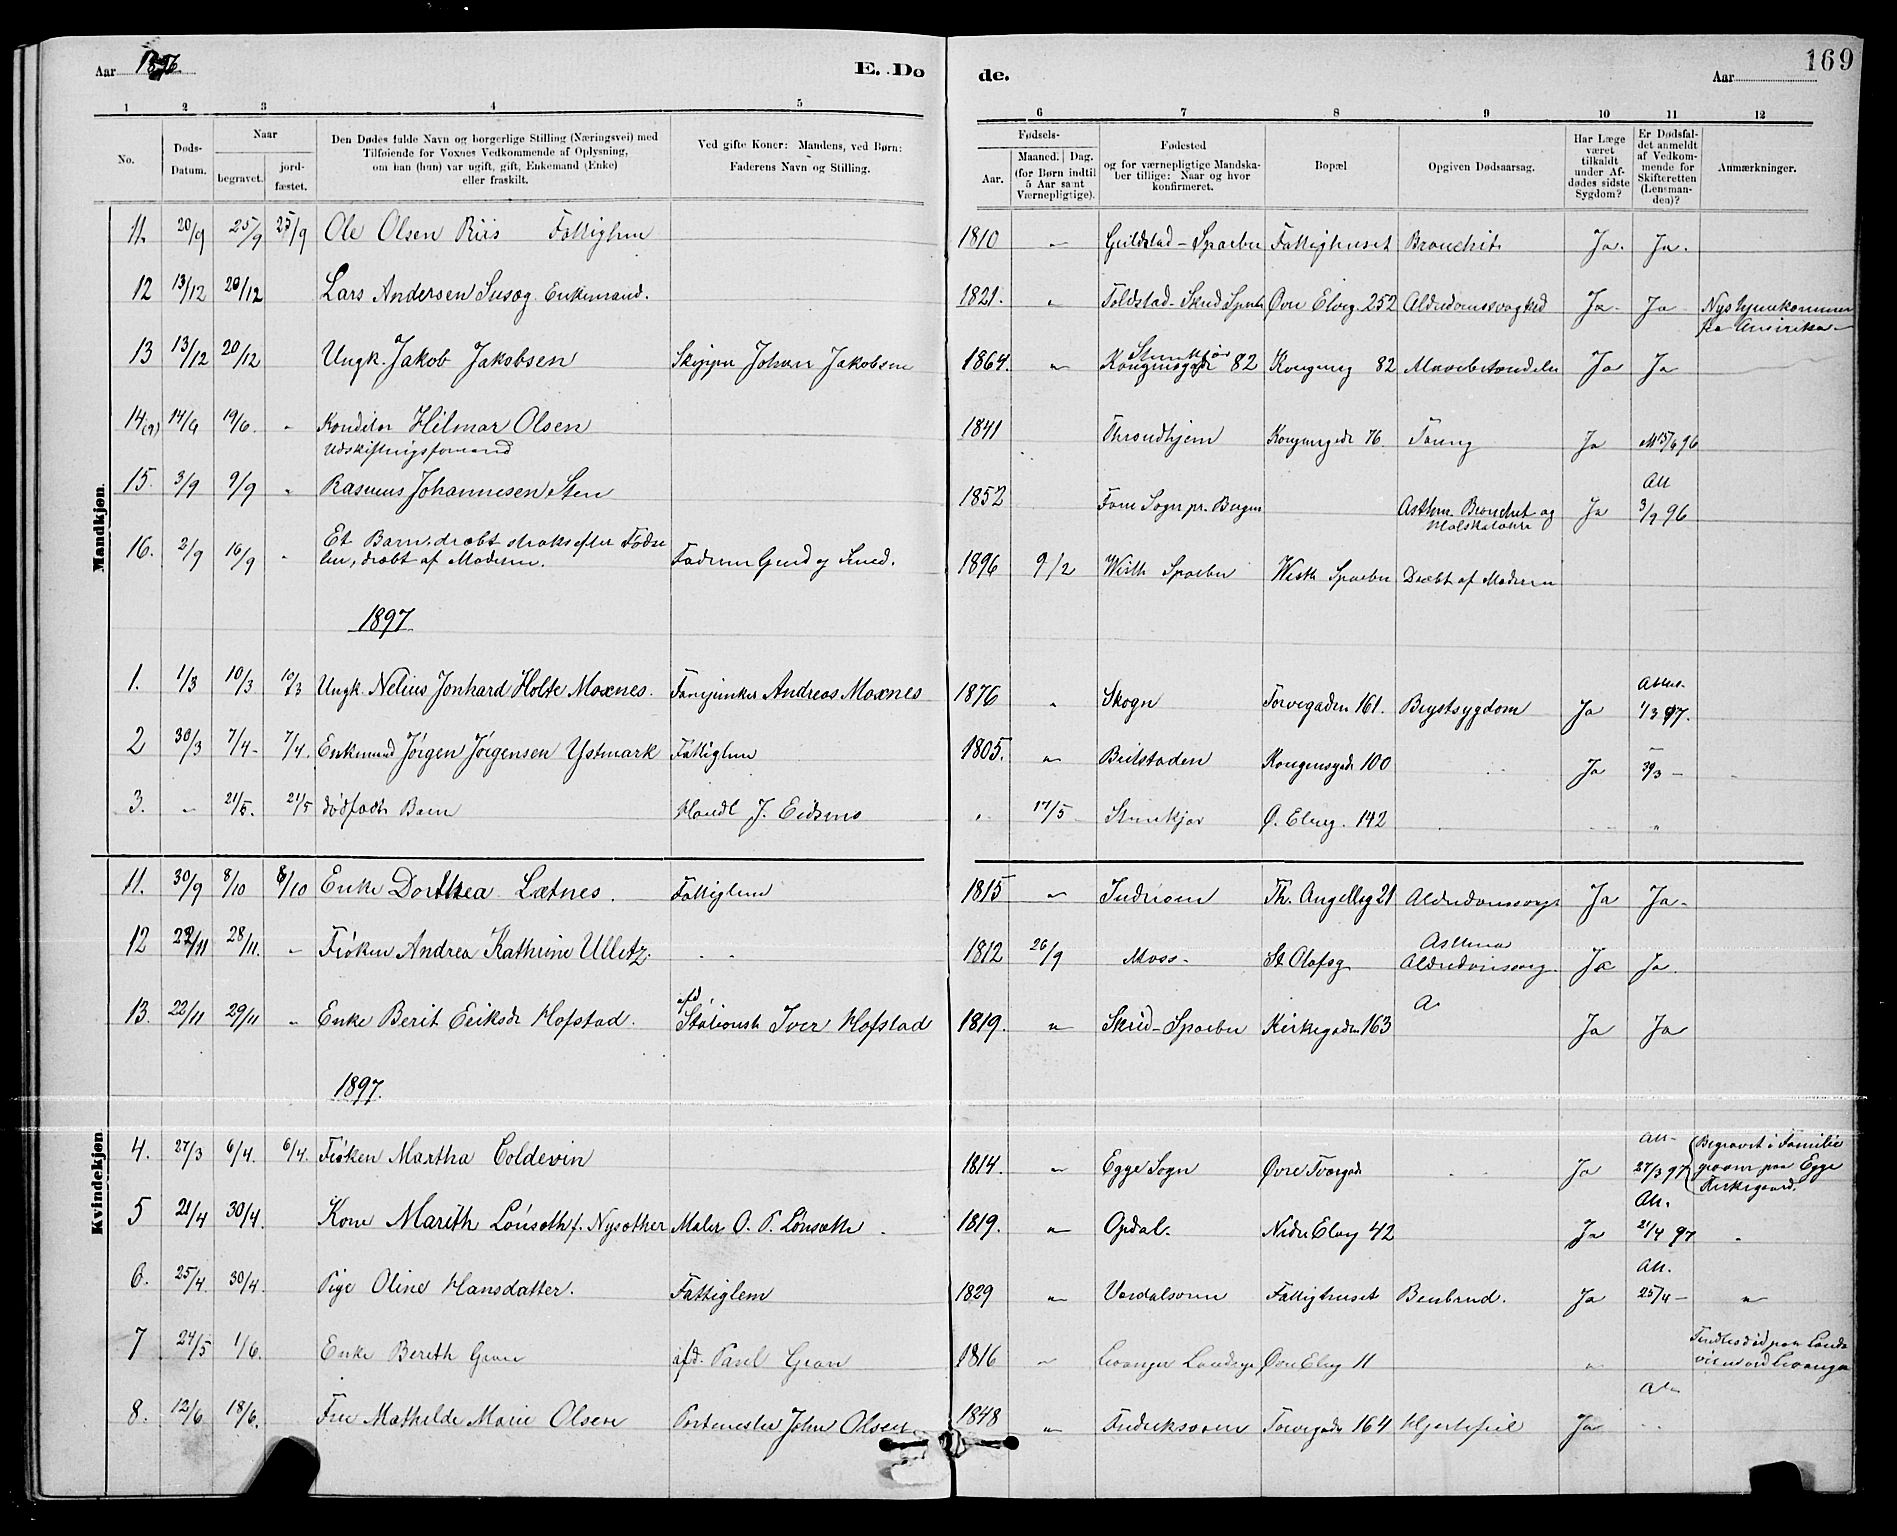 Aar 1896
E. Dø
de.
Aar
169
1 2 3 4 5 6 7 8 9 10 11 12
No.
Døds-
Datum.
Naar
begravet.
jord-
fæstet.
Den Dødes fulde Navn og borgerlige Stilling (Næringsvei) med
Tilføiende for Voxnes Vedkommende af Oplysning,
om han (hun) var ugift, gift, Enkemand (Enke)
eller fraskilt.
Ved gifte Koner: Mandens, ved Børn:
Faderens Navn og Stilling.
Fødsels-
Aar.
Maaned. Dag.
(for Børn indtil
5 Aar samt
Værnepligtige).
Fødested
og for værnepligtige Mandska-
ber tillige: Naar og hvor
konfirmeret.
Bopæl
Opgiven Dødsaarsag.
Har Læge
været
tilkaldt
under Af-
dødes sidste
Sygdom?
Er Dødsfal-
det anmeldt
af Vedkom-
mende for
Skifteretten
(Lensman-
den)?
Anmærkninger.
Mandkjøn.
11. 20/9 25/9 25/9 Ole Olsen Riis Fattiglem 1810 " Sparbu Fattighuset Bronchit Ja. Ja.
12 13/12 20/12 Lars Andersen Susæg Enkemand. 1821. " Øvre Elvg. 252 Alderdomssvaghed Ja Ja Nys hjemkommen
fra Amerika
13 13/12 20/12 Ungk. Jakob Jakobsen Skipper Johan Jakobsen 1864. " Stenkjær
Kongensgade 82 Kongensg 82 Mavebetændelse Ja Ja
14(9) 14/6 19/6. " Konditor Hilmar Olsen 1841 Throndhjem Kongensgade 76. Tæring Ja 15/6 96
Udskiftningsformand
15. 3/9 9/9 " Rasmus Johannesen Sten 1852 Sogn pr. Bergen Asthma Bronchit og Ja Att
3/9 96
16. 2/9 16/9 " Et Barn, dræbt straks efter Fødse
len, dræbt af Moderen. Faderen Gaard og Smed. 1896 9/2 Wisth Sparbu Wisth Sparbu Dræbt af Moderen
1897
1. 1/3 10/3 10/3 Ungk. Nelius Jonhard Holte Moxnes. Fanejunker Andreas Moxnes 1876 " Skogn Torvegaden 161. Brystsygdom Ja Attest.
1/3 97.
2 30/3 7/4 7/4. Enkemand Jørgen Jørgensen Ystmark Fattiglem 1805. " Beitstaden Kongensgade 100 Ja 30/3
3. " 21/5. 21/5 dødfødt Barn Handl J. Eidsmo " 17/5 Stenkjær Ø. Elveg. 142 "
11. 30/9 8/10 8/10 Enke Dorthea Lætnes. Fattiglem 1815 " Inderøen Th. Angellsg 21 Alderdomssvagh Ja Ja
12 22/11 28/11. " Frøken Andrea Kathrine Ulletz. 1812 26/9 Moss Sct Olafsg Asthma
Alderdomssvag. Ja Ja.
13. 22/11 29/11 " Enke Berit Eriksdr Hofstad. afd.
Stationsk Iver Hofstad 1819. " Skeid-Sparbu Kirkegaden 163 A Ja Ja
1897.
Kvindekjøn.
4. 27/3 6/4. 6/4. Frøken Martha Coldevin 1814. " Egge Sogn Øvre Tværgade Ja Att.
27/3 97 Begravet i Familie
graven paa Egge
Kirkegaard.
5 21/4 30/4. Kone Marith Lønseth f. Nysæther Maler O. P. Lønseth 1819. " Opdal. Nedre Elveg 42 Ja Att.
21/4 97 "
6. 25/4. 30/4. Pige Oline Hansdatter. Fattiglem 1829 " Værdalsøren Fattighuset Benbrud. Ja Att.
25/4 "
7 24/5 1/6. Enke Bereth Gran afd. Paul Gran 1816 " Levanger Landsogn Øvre Elveg 11 " Findes død paa Lande
veien ved Levanger
8. 12/6 18/6. Fru Mathilde Marie Olsen Postmester John Olsen 1848 " Frederiksværn Torvegade 164 Hjertefeil Ja Att